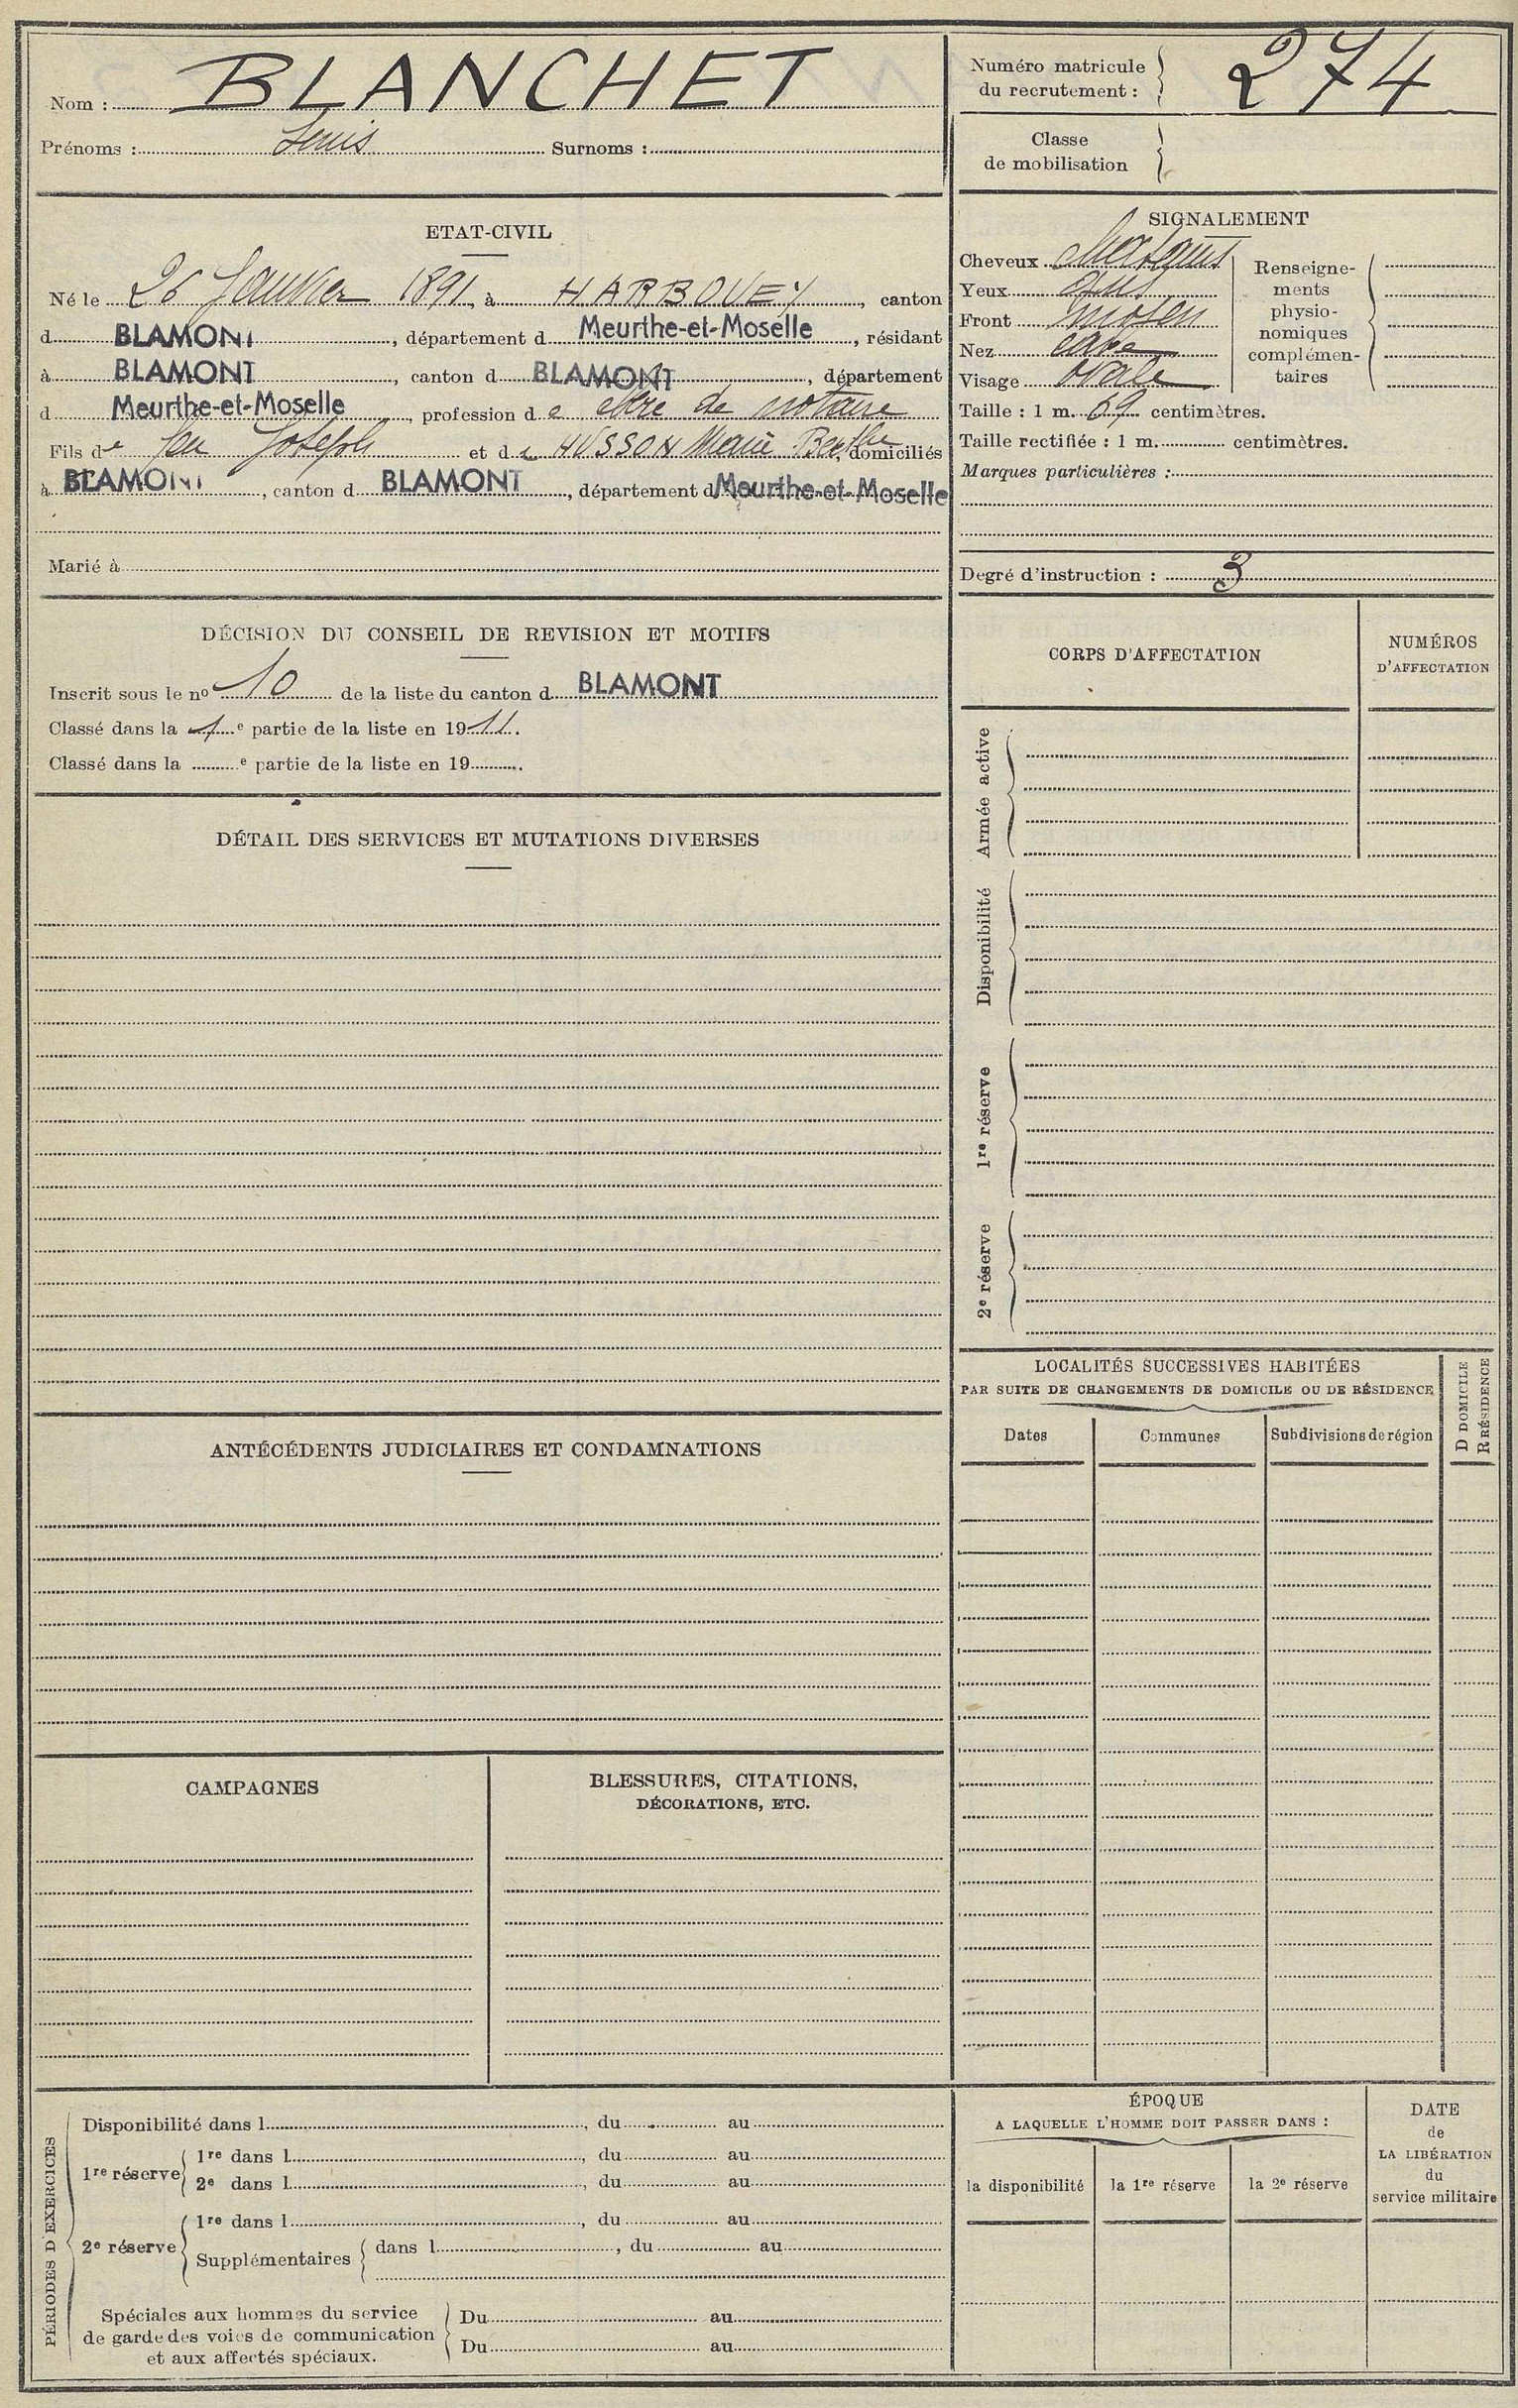 Nom : BLANCHET
Prénoms : Louis Surnoms :
ETAT-CIVIL
Né le 26 Janvier 1891, à HARBOUEY, canton
d BLAMONT, département d Meurthe-et-Moselle, résidant
à BLAMONT, canton d BLAMONT, département
d Meurthe-et-Moselle, profession de clerc de notaire
Fils de feu Joseph et de HUSSON Marie Berthe, domiciliés
à BLAMONT, canton d BLAMONT, département d Meurthe-et-Moselle
Marié à
DÉCISION DU CONSEIL DE REVISION ET MOTIFS
Inscrit sous le nº 10 de la liste du canton d BLAMONT
Classé dans la 1e partie de la liste en 1911.
Classé dans la e partie de la liste en 19
DÉTAIL DES SERVICES ET MUTATIONS DIVERSES
ANTÉCÉDENTS JUDICIAIRES ET CONDAMNATIONS
CAMPAGNES
BLESSURES, CITATIONS,
DÉCORATIONS, ETC.
PÉRIODES D'EXERCICES
Disponibilité dans l, du au
1re réserve
1re dans l, du au
2e dans l, du au
2e réserve
1re dans l, du au
Supplémentaires dans l, du au
Spéciales aux hommes du service
de garde des voies de communication
et aux affectés spéciaux.
Du au
Du au
Numéro matricule
du recrutement : 274
Classe
de mobilisation
SIGNALEMENT
Cheveux
Yeux
Front moyen
Nez
Visage ovale
Renseigne-
ments
physio-
nomiques
complémen-
taires
Taille : 1 m. 69 centimètres.
Taille rectifiée : 1 m. centimètres.
Marques particulières :
Degré d'instruction : 3
CORPS D'AFFECTATION
NUMÉROS
D'AFFECTATION
Armée active
Disponibilité
1re réserve
2e réserve
LOCALITÉS SUCCESSIVES HABITÉES
PAR SUITE DE CHANGEMENTS DE DOMICILE OU DE RÉSIDENCE
D DOMICILE
R RÉSIDENCE
Dates Communes Subdivisions de région
ÉPOQUE
A LAQUELLE L'HOMME DOIT PASSER DANS :
la disponibilité la 1re réserve la 2e réserve
DATE
de
LA LIBÉRATION
du
service militaire